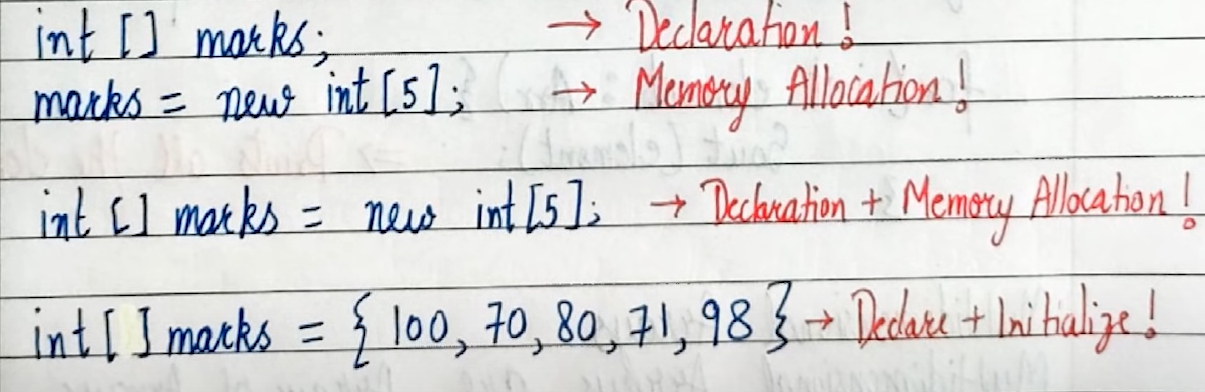 int [] marks; → Declaration!
marks = new int [5]; → Memory Allocation!
int [] marks = new int [5]; → Declaration + Memory Allocation!
int [] marks = { 100, 70, 80, 71, 98 } → Declare + Initialize!